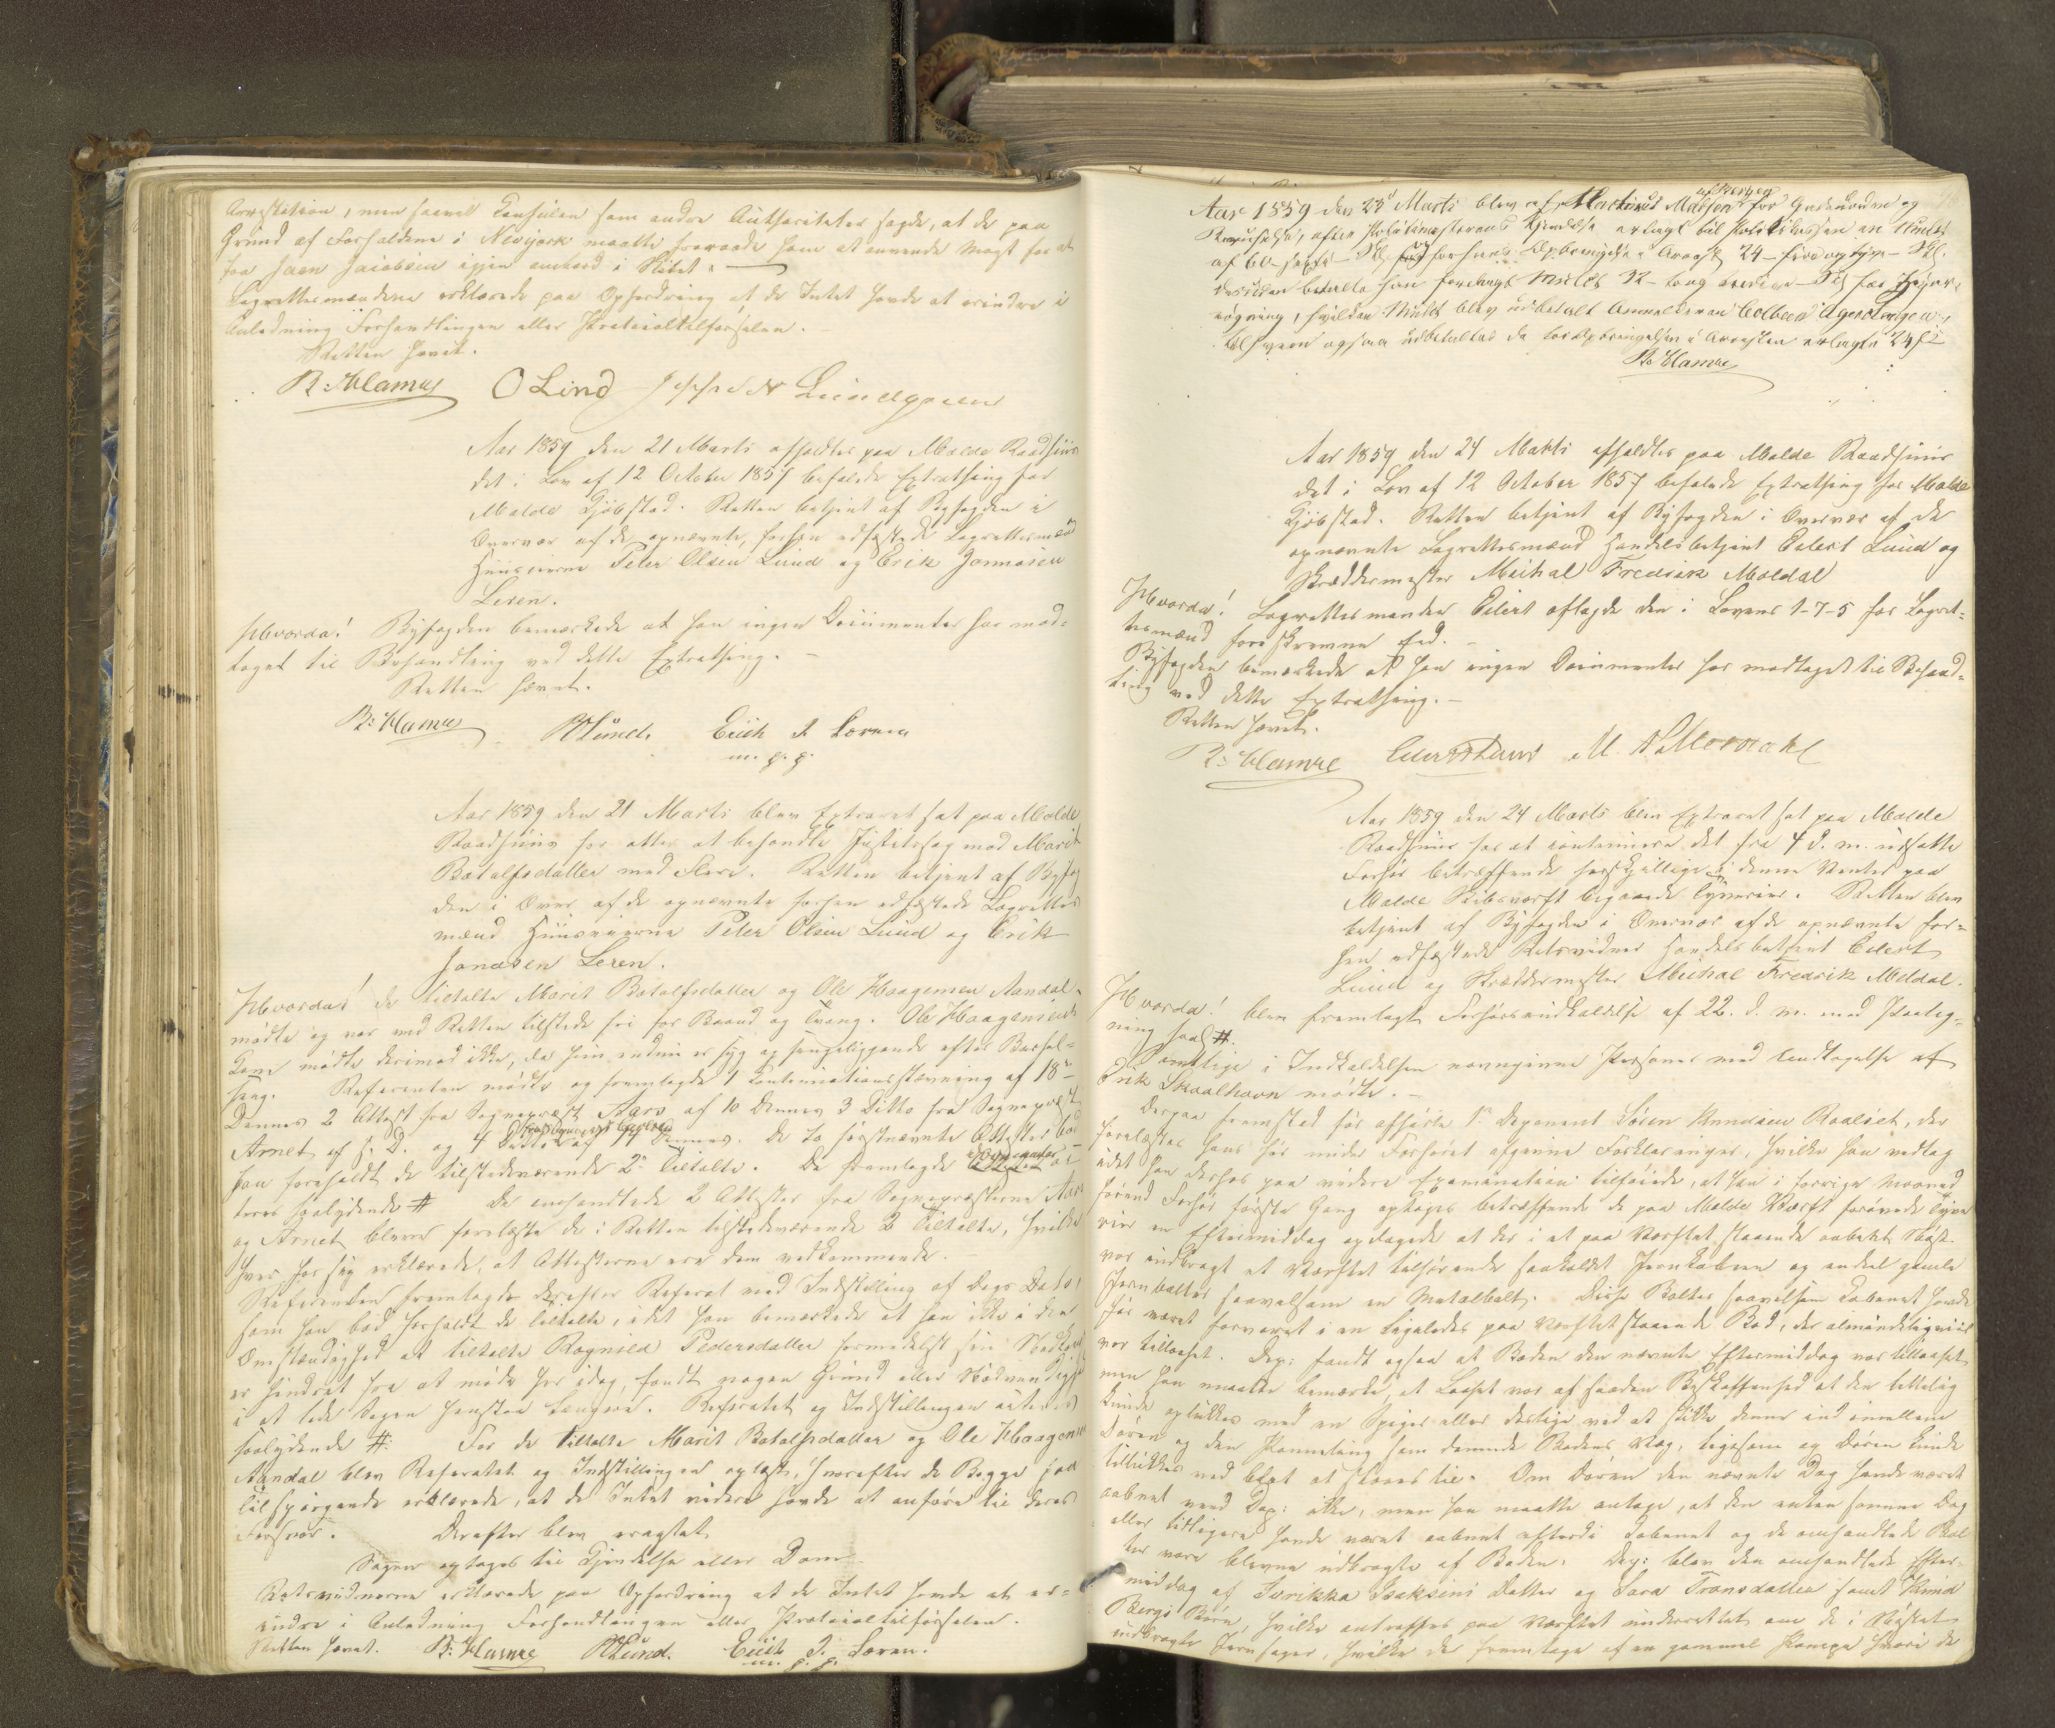 Arrestation, men saavel Consulen som andre Authoriteter sagde, at de paa
Grund af Forholdene i Newyork maatte fraraade ham at anvende Magt for at
faa Jacobsen igjen ombord i Skibet.
Lagrettesmændene erklærede paa Opfordring at de Intet havde at erindre i
Anledning Forhandlingen eller Protocoltilførselen.
Retten hævet.
R: Hamre O Lind Lindgreen
Aar 1859 den 21 Marts afholdtes paa Molde Raadhuus
det i Lov af 12 October 1857 befalede Extrathing for
Molde Kjøbstad. Retten betjent af Byfogden i
Overvær af de opnævnte, forhen edfæstede Lagrettesmænd
Huuseierne Peter Olsen Lund og Erik Jonnasen
Leren.
Hvorda! Byfogden bemærkede at han ingen Documenter har mod=
taget til Behandling ved dette Extrathing. –
Retten hævet.
R: Hamre POLund. Erich J. Løeren
m. p. p.
Aar 1859 den 21 Marts blev Extraret sat paa Molde
Raadhuus for atter at behandle Justitssag mod Marit
Botolfsdatter med Flere. Retten betjent af Byfog
den i Over. af de opnævnte forhen edfæstede Lagrettes
mænd Huuseierne Peter Olsen Lund og Erik
Jonasen Leren.
Hvorda! de tiltalte Marit Botolfsdatter og Ole Haagensen Aandal
mødte og var ved Retten tilstede fri for Baand og Tvang. Ole Haagensens
Kone mødte derimod ikke, da hun endnu er syg og sengeliggende efter Barsel=
seng. Referenten mødte og fremlagde 1 Continuationsstævning af 18de
Dennes 2 Attest fra Sogneprest Aars af 10 Dennes 3 Ditto fra Sogneprest
Arnet af s. D. og 4 Ditto af 14 Dennes. De to førstnævnte Attester bad
han foreholdt de tilstedeværende 2de Tiltalte. De fremlagde Documenter
teres saalydende # De omhandlede 2 Attester fra Sognepresterne Aars
og Arnet bleve forelæste de i Retten tilstedeværende 2 Tiltalte, hvilke
hver for sig erklærede, at Attesterne ere dem vedkommende.
Referenten fremlagde derefter Referat med Indstilling af Dags Dato,
som han bad foreholdt de tiltalte, idet han bemærkede at han ikke i den
Omstændighed at tiltalte Ragnild Pedersdatter formedelst sin
er hindret fra at møde her idag, fandt nogen Grund eller Nødvendighed
i at lade Sagen henstaa længere. Referatet og Indstillingen
saalydende #: For de tiltalte Marit Botolfsdatter og Ole Haagensen
Aandal blev Referatet og Indstillingen oplæst, hvorefter de Begge paa
Tilspørgende erklærede, at de Intet videre havde at anføre til deres
Forsvar. Derefter blev eragtet
Sagen optages til Kjendelse eller Dom.
Retsvidnerne erklærede paa Opfordring at de Intet havde at er=
indre i Anledning Forhandlingen eller Protocoltilførselen.
Retten hævet. R: Hamre POLund. Erich J. Løren.
m. p. p.
af Bergen
Aar 1859 den 23 Marts blev af Martinus Madsen for Gadeuorden og
efter Politimesterens Kjendelse erlagt til Politikassen en Mulct
af 60 – Sk for hans Opbringelse i Arrest 24 – fire og tyve – Skl.
desuden betalte han forelagt Mulct 72 –
, hvilken Mulct blev udbetalt Anmelderen
ligesom ogsaa udbetaltes de for Opbringelsen i Arresten erlagte 24 s
R: Hamre
Aar 1859 den 24 Marts afholdtes paa Molde Raadhuus
det i Lov af 12 October 1857 befalede Extrathing for Molde
Kjøbstad. Retten betjent af Byfogden i Overvær af de
opnævnte Lagrettesmænd Handelsbetjent Eilert Lund og
Skræddermester Michal Fredrik Moldal
Hvorda! Lagrettesmanden Eilert aflagde den i Lovens 1-7-5 for Lagret=
tesmænd foreskrevne Eed. –
Byfogden bemærkede at han ingen Documenter har modtaget til Behand=
ling ved dette Extrathing. –
Retten hævet.
R: Hamre Eilert Lund M.
Aar 1859 den 24 Marts blev Extraret sat paa Molde
Raadhuus for at continuere det fra 4 d. M. udsatte
Forhør betræffende forskjellige i denne Vinter paa
Molde Skibsværft begaaede Tyverier. Retten blev
betjent af Byfogden i Overvær af de opnævnte for=
hen edfæstede Retsvidner Handelsbetjent Eilert
Lund og Skræddermester Michal Fredrik Moldal.
Hvorda! blev fremlagt Forhørsindkaldelse af 22. d. m. med Paateg=
ning saal #.
Samtlige i Indkaldelsen navngivne Personer med Undtagelse af
Erik Skaalhavn mødte. –
Derpaa fremstod før afhørte 1ste Deponent Søsen Knudsen Roalset, der
forelæstes hans før under Forhøret afgivne Forklaringer, hvilke han vedtog
idet han derhos paa videre Examination tilføiede, at han i forrige Maaned
førend Forhør første Gang optoges betræffende de paa Molde Værft forøvede Tyve
rier en Eftermiddag opdagede at der i et paa Værftet staaende aabent Nøst
var indbragt et Værftet tilhørende saakaldet Jerntaben og endeel gamle
Jernbolter saavelsom en Metalbolt. Disse Bolter saavelsom Tabenet havde
før været forvaret i en ligeledes paa Værftet staaende Bod, der almindeligviis
var tillaaset. Dep: fandt ogsaa at Boden den nævnte Eftermiddag var tillaaset,
men han maatte bemærke, at Laaset var af saadan Beskaffenhed at den lettelig
kunde oplukkes med en Spiger eller deslige ved at stikke denne ind imellem
Døren og den Panneling som dannede Bodens Væg, ligesom og Døren kunde
tillukkes ved blot at stødes til. Om Døren den nævnte Dag havde været
aabnet veed Dep: ikke, men han maatte antage, at den enten samme Dag
eller tidligere havde været aabnet efterdi Tabenet og de omhandlede Bol
ter vare blevne udbragte af Boden. Dep: blev den omhandlede Efter=
middag af Fredrikka Isaksens Datter og Sara Transdatter samt Knud
Bergs Børn, hvilke antraffes paa Værftet underrettet om de i Nøstet
indbragte Jernsager, hvilke de fremtoge af en gammel Pompe hvori de